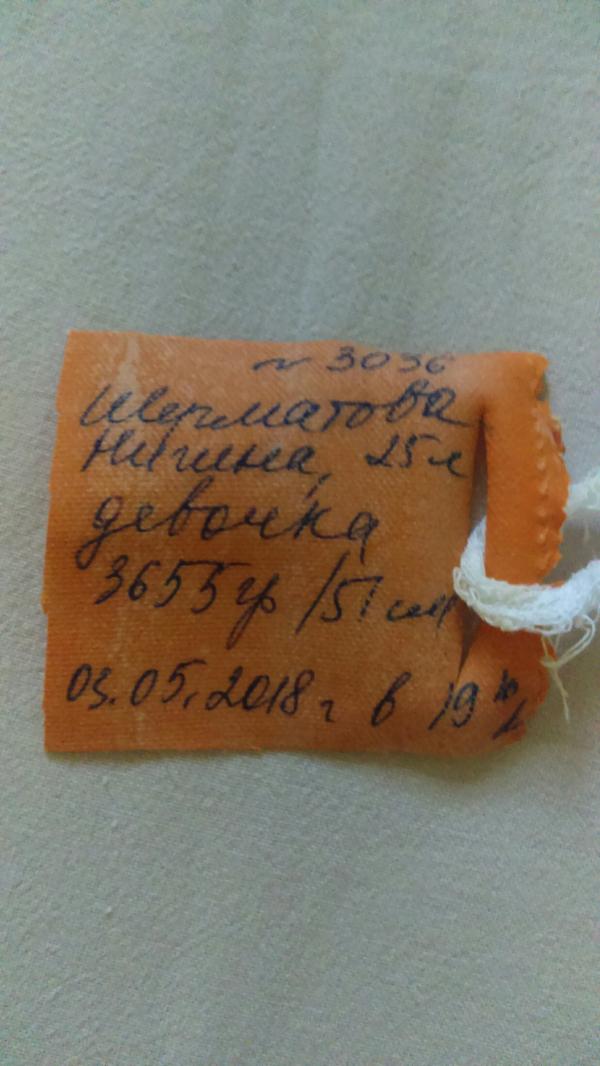 ~ 3036
Шерматова
Нигина, 25 л
девочка
3655 гр / 51 см
03.05.2018 г в 19